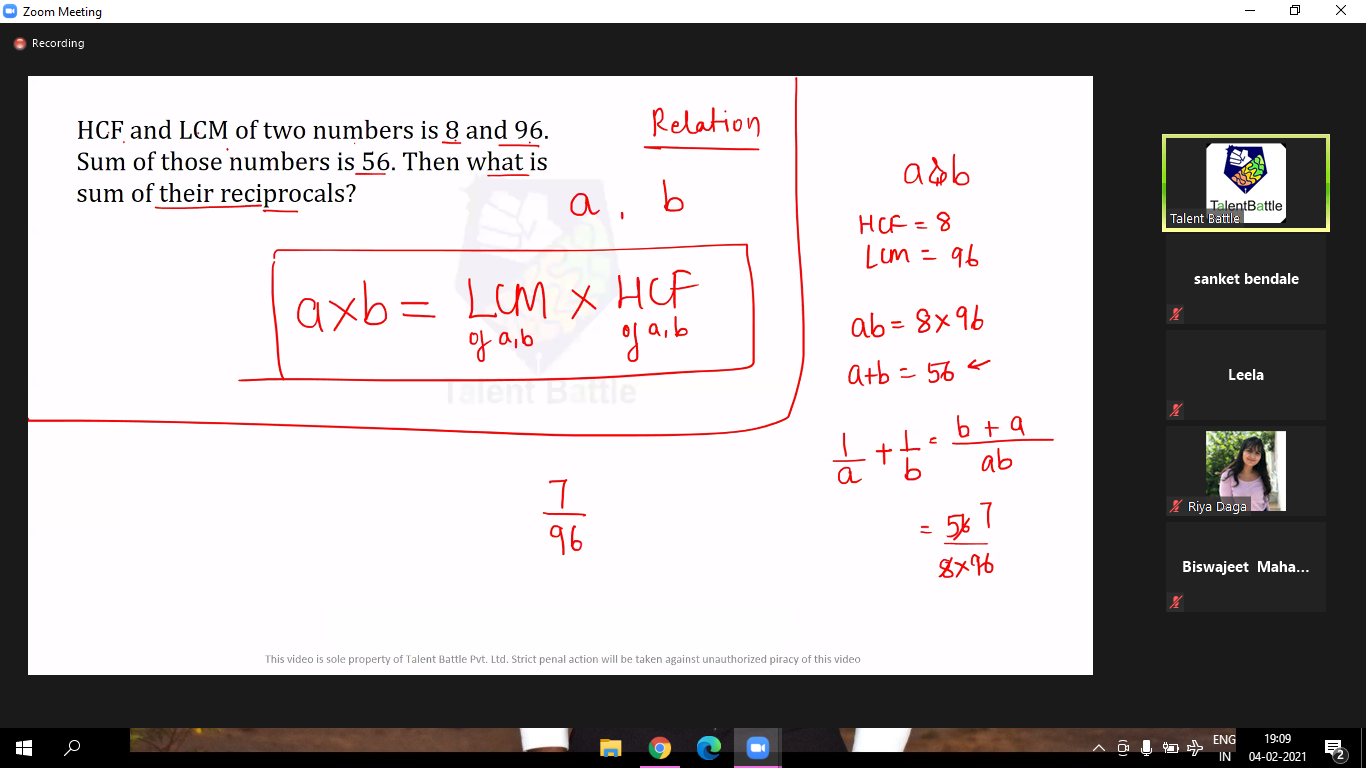 Zoom Meeting
Recording
HCF and LCM of two numbers is 8 and 96.
Sum of those numbers is 56. Then what is
sum of their reciprocals?
Relation
a , b
a×b = LCM × HCF
of a,b of a,b
Talent Battle
7
96
a&b
HCF = 8
LCM = 96
ab = 8×96
a+b = 56
1/a + 1/b = b + a/ab
= 56 7
8×96
This video is sole property of Talent Battle Pvt. Ltd. Strict penal action will be taken against unauthorized piracy of this video
TalentBattle
Talent Battle
sanket bendale
Leela
Riya Daga
Biswajeet Maha...
ENG
IN
19:09
04-02-2021
2